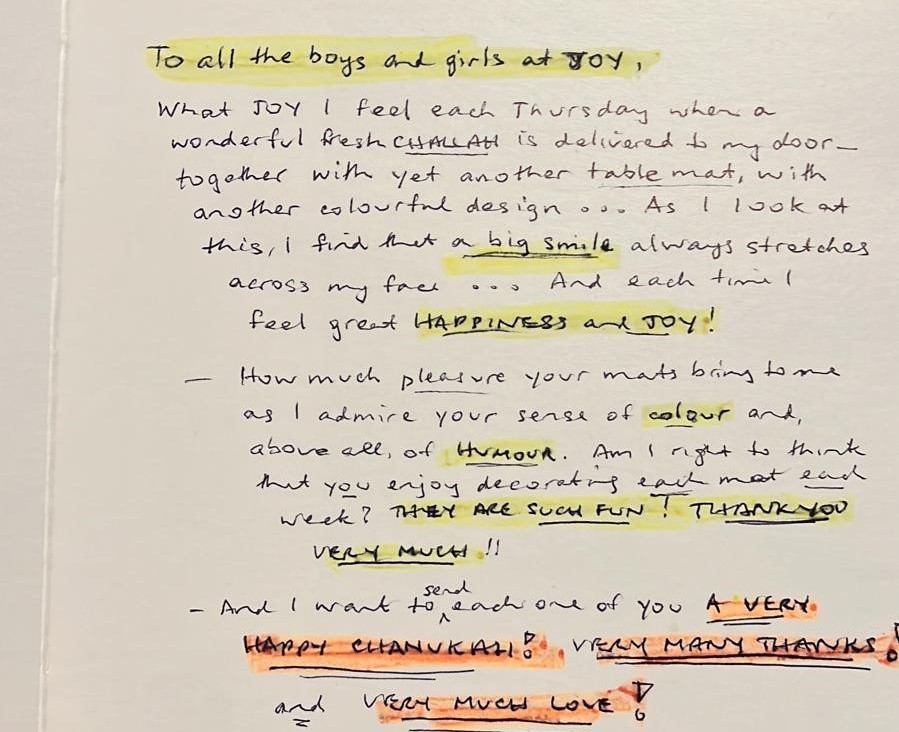 To all the boys and girls at JOY,
What JOY I feel each Thursday when a
wonderful fresh CHALLAH is delivered to my door –
together with yet another table mat, with
another colourful design ... As I look at
this, I find that a big smile always stretches
across my face ... And each time I
feel great HAPPINESS and JOY!
– How much pleasure your mats bring to me
as I admire your sense of colour and,
above all, of HUMOUR. Am I right to think
that you enjoy decorating each mat each
week? THEY ARE SUCH FUN! THANK YOU
VERY MUCH!!
– And I want to send each one of you A VERY
HAPPY CHANUKAH! VERY MANY THANKS!
and VERY MUCH LOVE!